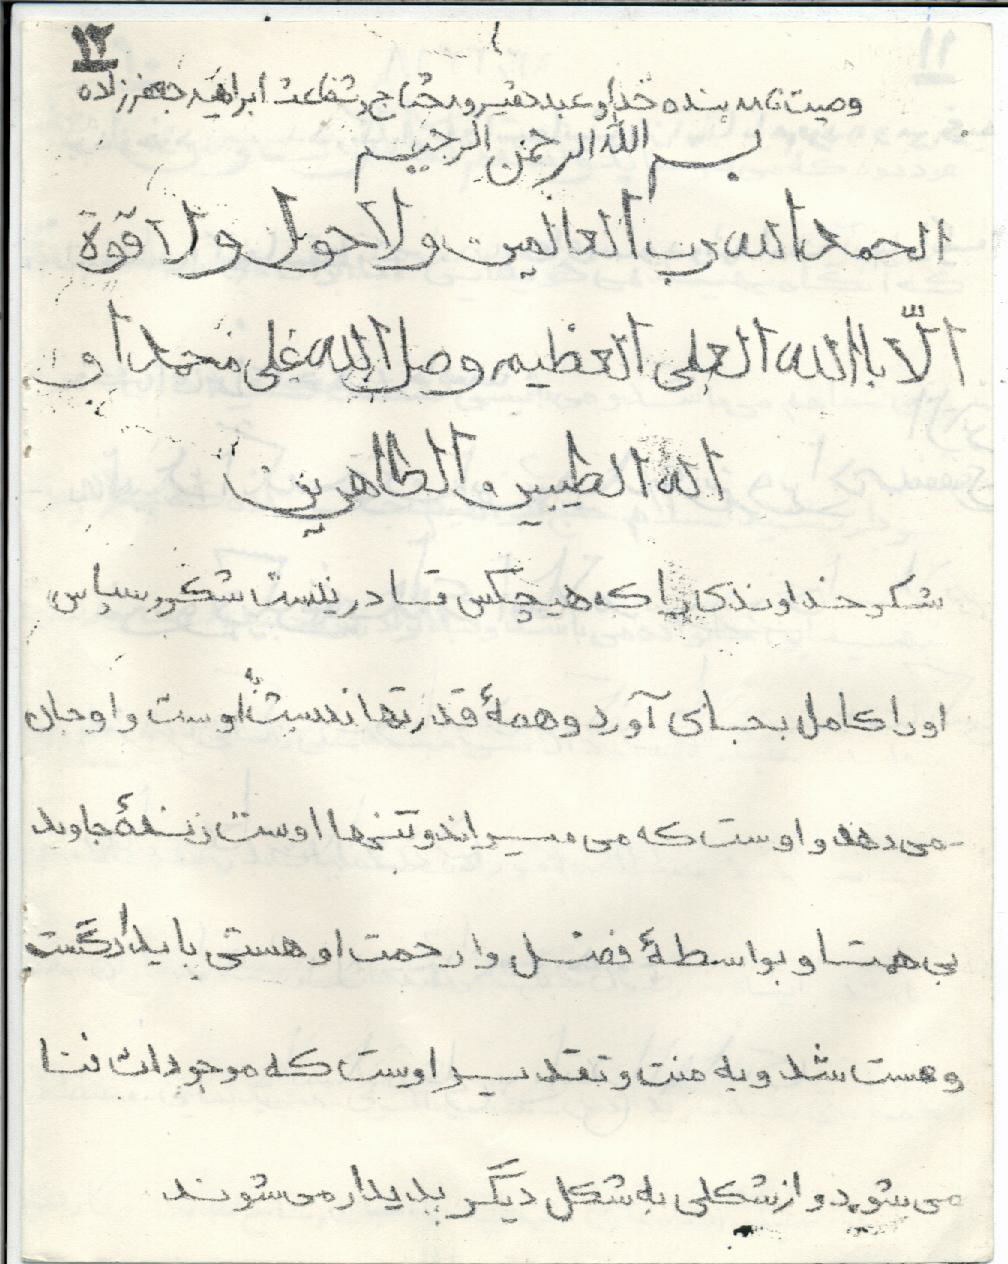 ۱۲
وصیت نامه بنده خدا و عبد حقیر و محتاج شفاعت ابراهیم جعفرزاده
بسم الله الرحمن الرحیم
الحمد الله رب العالمین و لا حول و لا قوة
الّا باالله العلی العظیم و صل الله علی محمد او
اله الطیبین و الطاهرین
شکر خداوندی را که هیچکس قادر نیست شکر و سپاس
او را کامل بجای آورد و همهٔ قدرتها نسبت به اوست و او جان
می دهد و اوست که می میراند و تنها اوست زندهٔ جاوید
بی همتا و بواسطهٔ فضل و رحمت او هستی پایدار گشت
و هست شد و به منت و تقدیر اوست که موجودات فنا
می شوند و از شکلی به شکل دیگر پدیدار می شوند